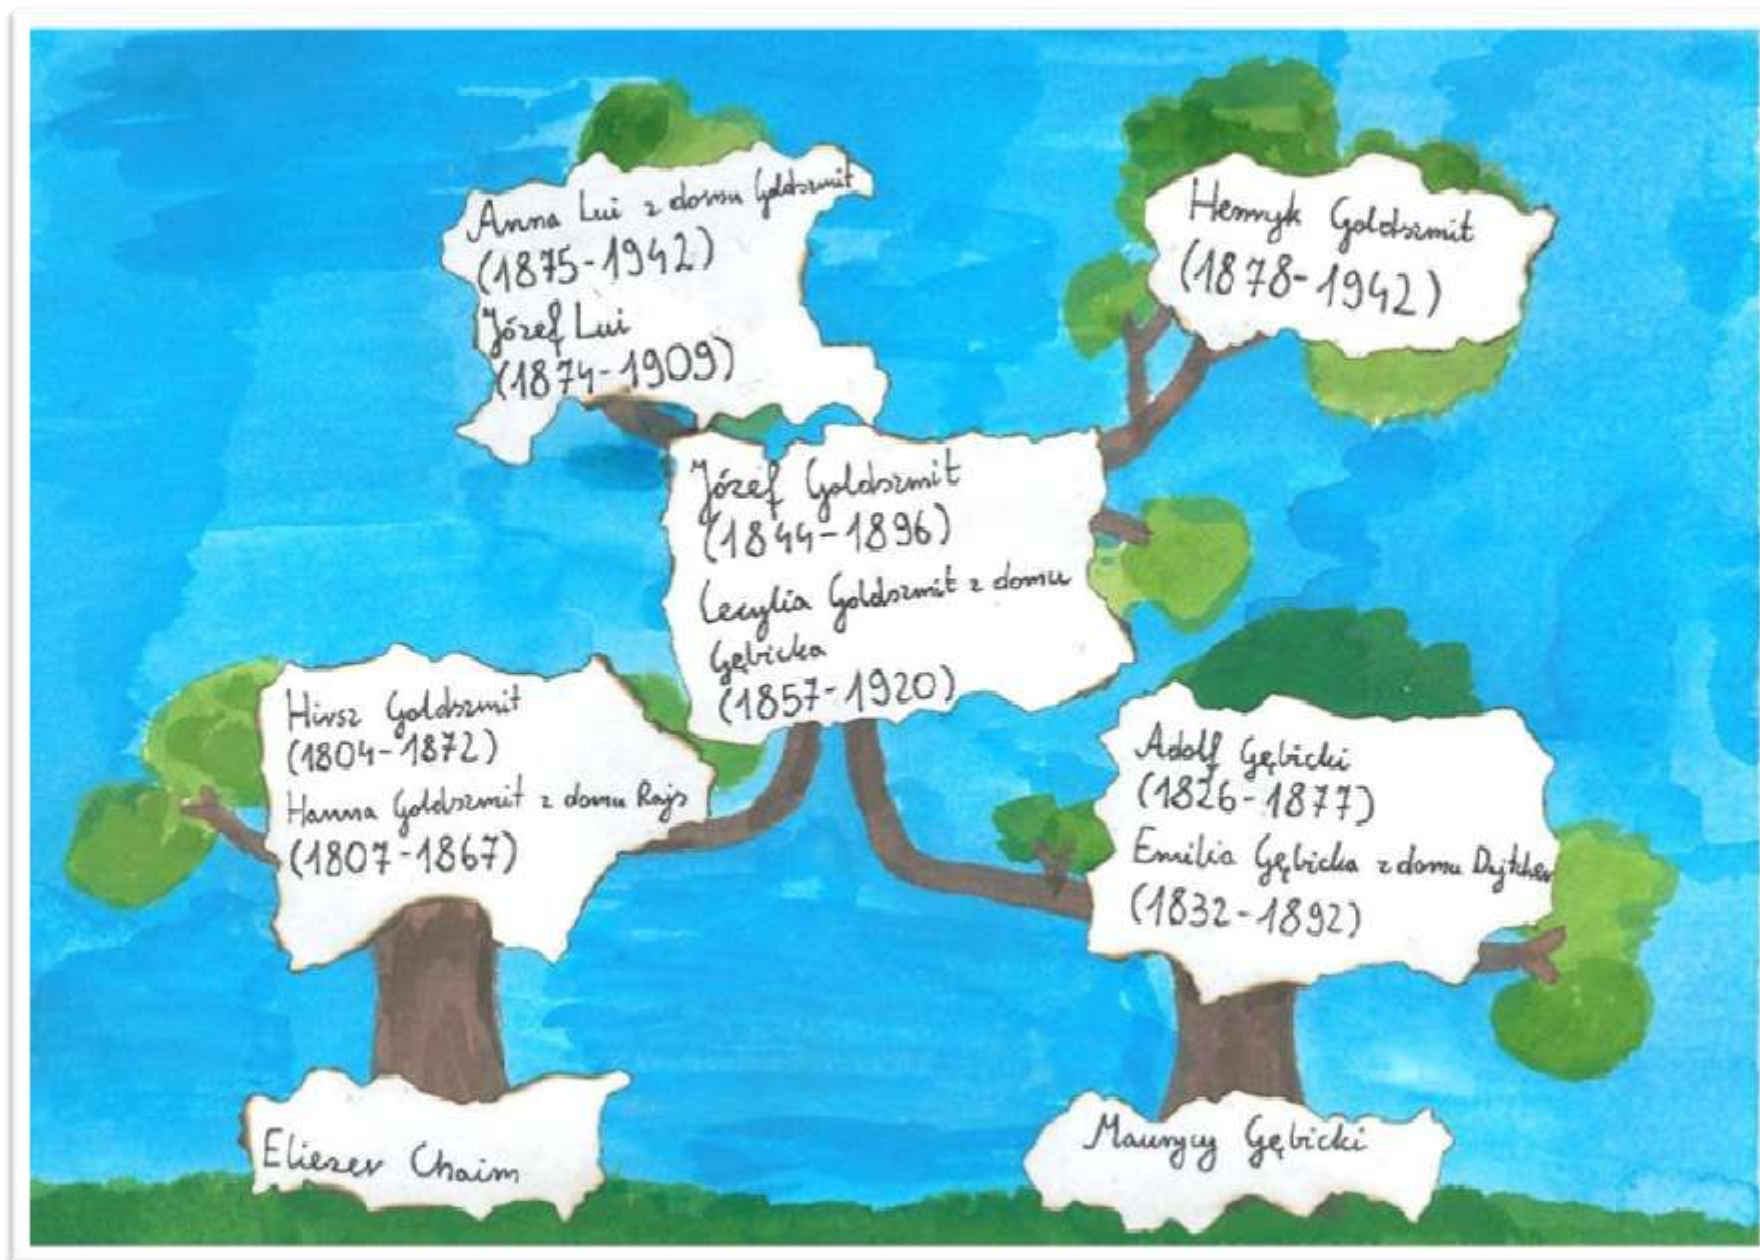 Anna Lui z domu Goldszmit
(1875-1942)
Józef Lui
(1874-1909)
Henryk Goldszmit
(1878-1942)
Józef Goldszmit
(1844-1896)
Cecylia Goldszmit z domu
Gębicka
(1857-1920)
Hirsz Goldszmit
(1804-1872)
Hanna Goldszmit z domu Rajs
(1807-1867)
Adolf Gębicki
(1826-1877)
Emilia Gębicka z domu
(1832-1892)
Eliezer Chaim
Maurycy Gębicki